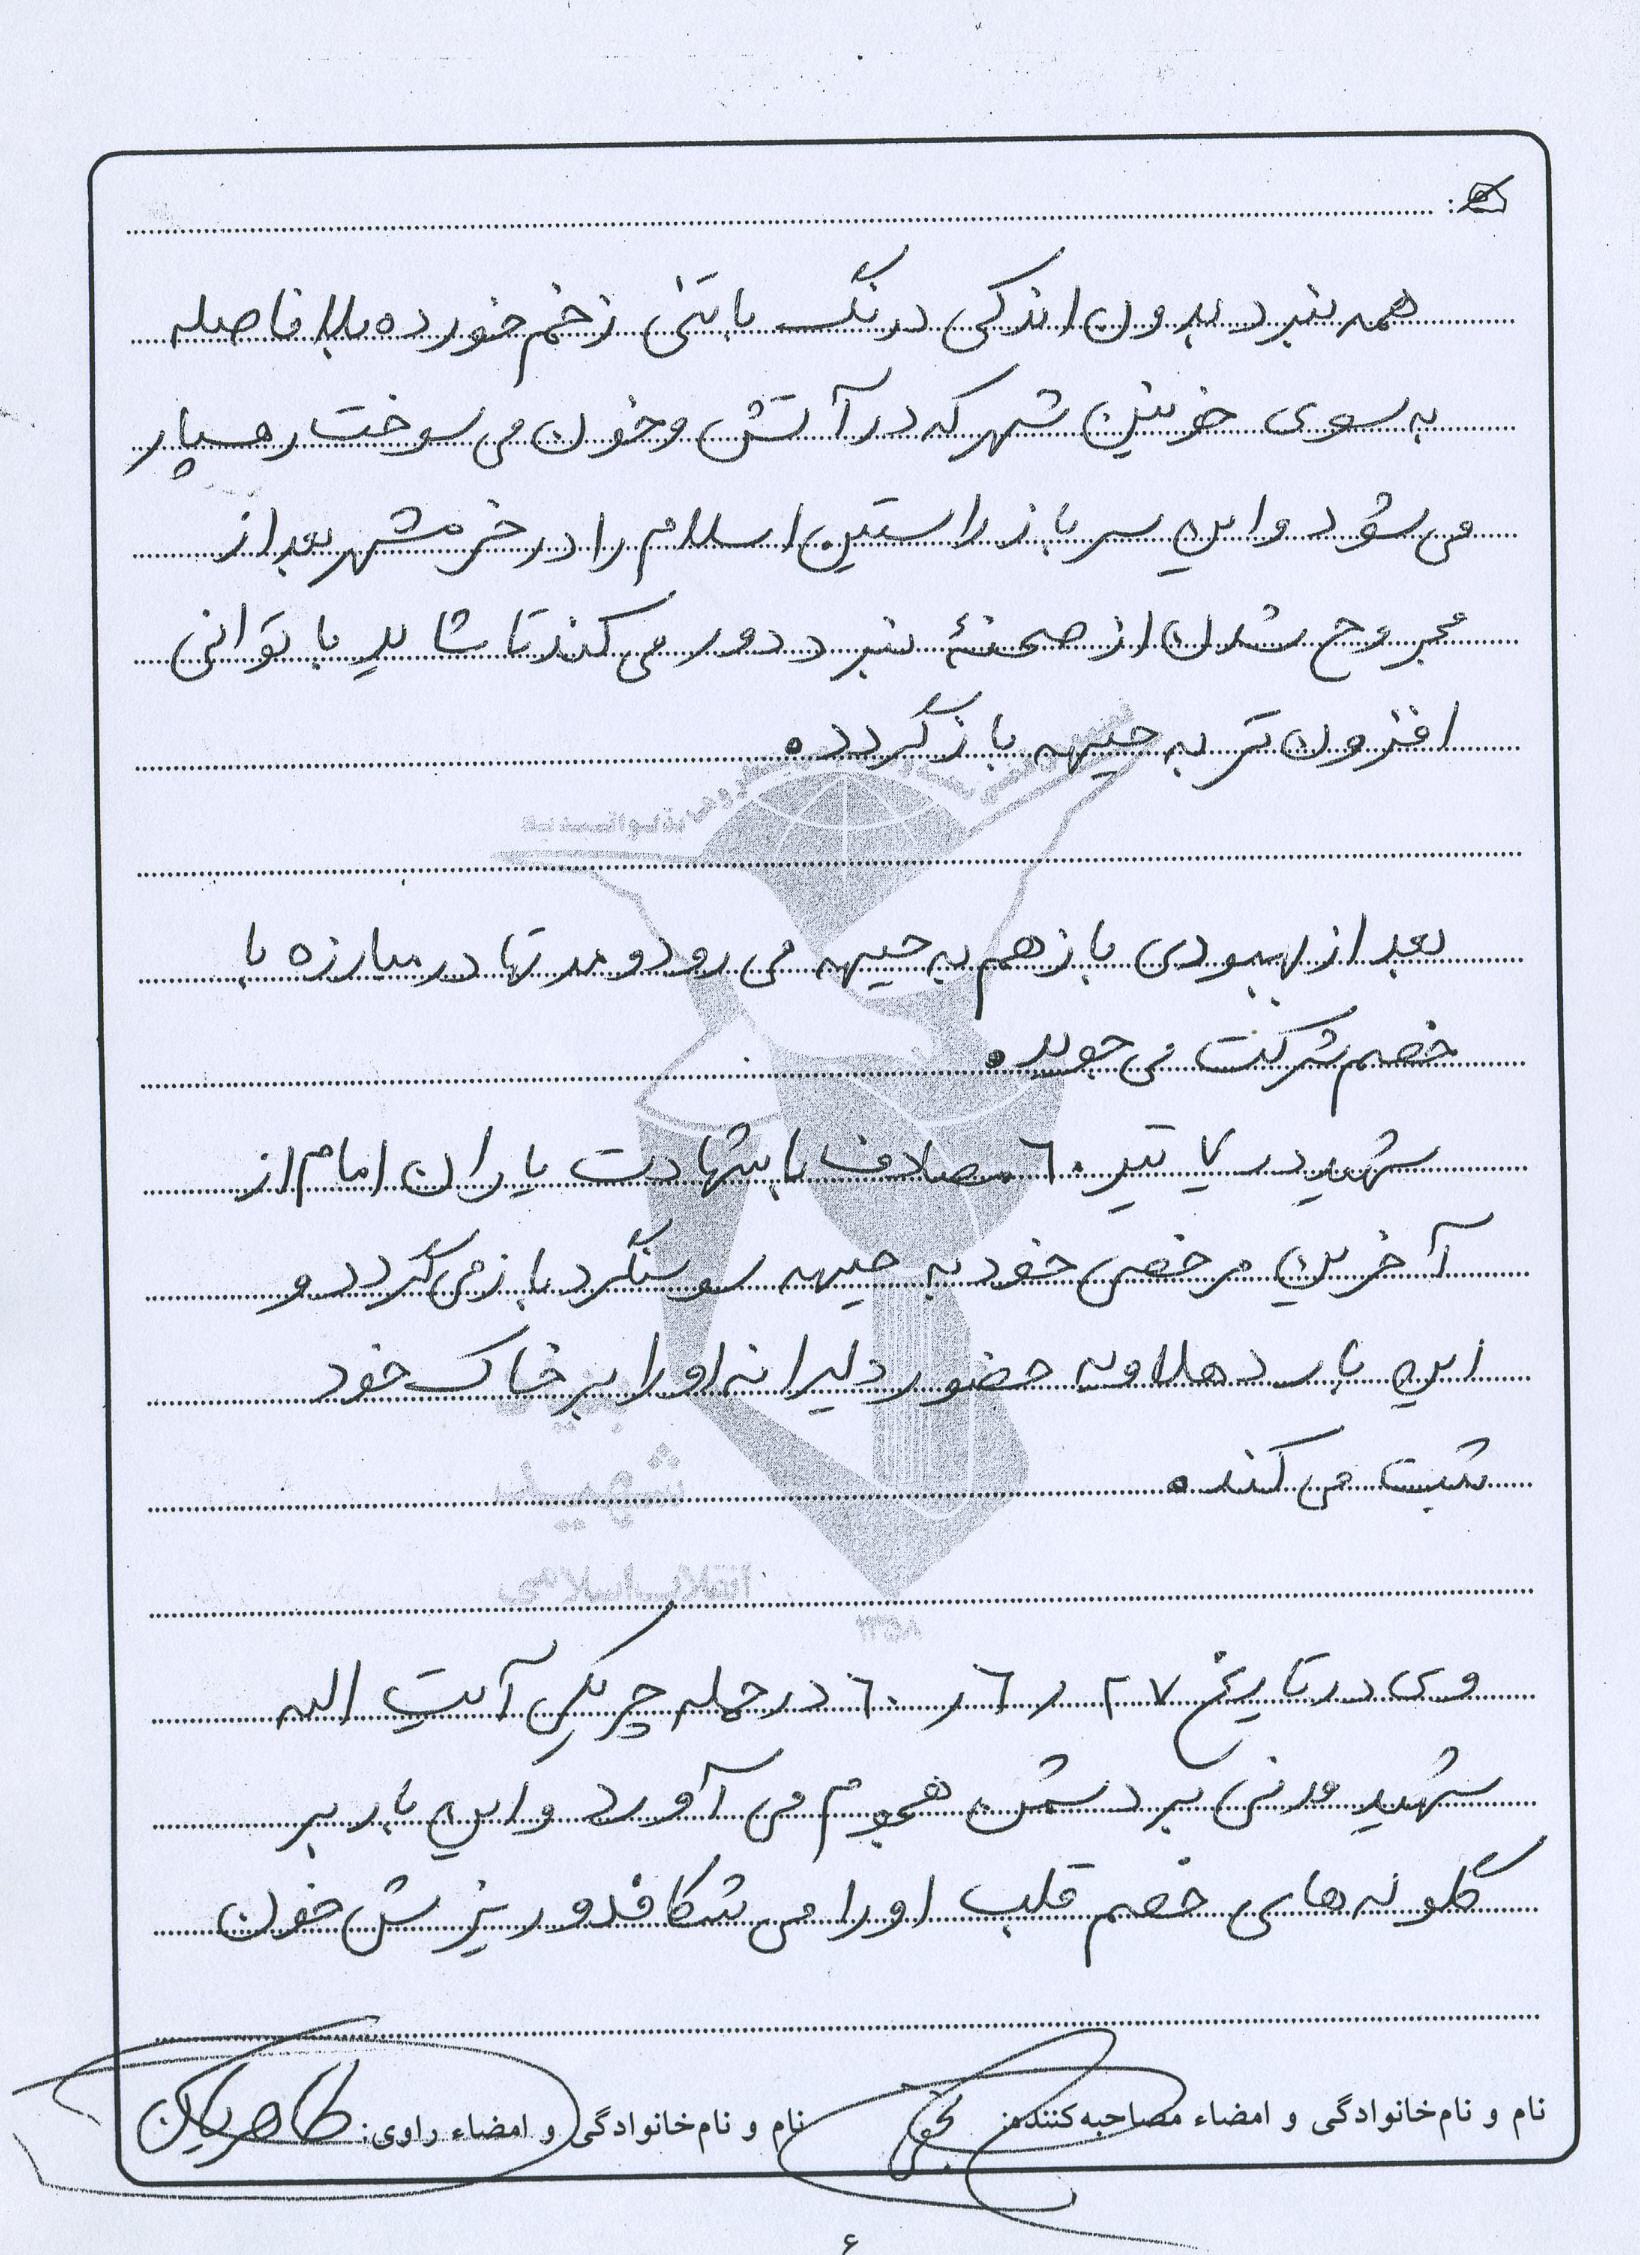 همه نبرد بدون اندکی درنگ با تنی زخم خورده بلافاصله
به سوی خونین شهر که در آتش و خون می سوخت رهسپار
می شود و این سرباز راستین اسلام را در خرمشهر بعد از
مجروح شدن از صحنهٔ نبرد دور می کند تا شاید با توانی
افزون تر به جبهه باز گردد.
بعد از بهبودی باز هم به جبهه می رود و مدتها در مبارزه با
خصم شرکت می جوید.
شهید در ۷ تیر ۶۰ مصادف با شهادت یاران امام از
آخرین مرخصی خود به جبهه سوسنگرد باز می گردد و
این بار دهلاویه حضور دلیرانه او را بر خاک خود
ثبت می کند.
بنیاد
شهید
انقلاب اسلامی
۱۳۵۸
وی در تاریخ ۲۷ ر ۶ ر ۶۰ در حمله چریکی آیت الله
شهید مدنی بر دشمن هجوم می آورد و این بار بر
گلوله های خصم قلب او را می شکافد و ریزش خون
نام و نام خانوادگی و امضاء مصاحبه کننده: نام و نام خانوادگی و امضاء راوی: طاهریان
۶